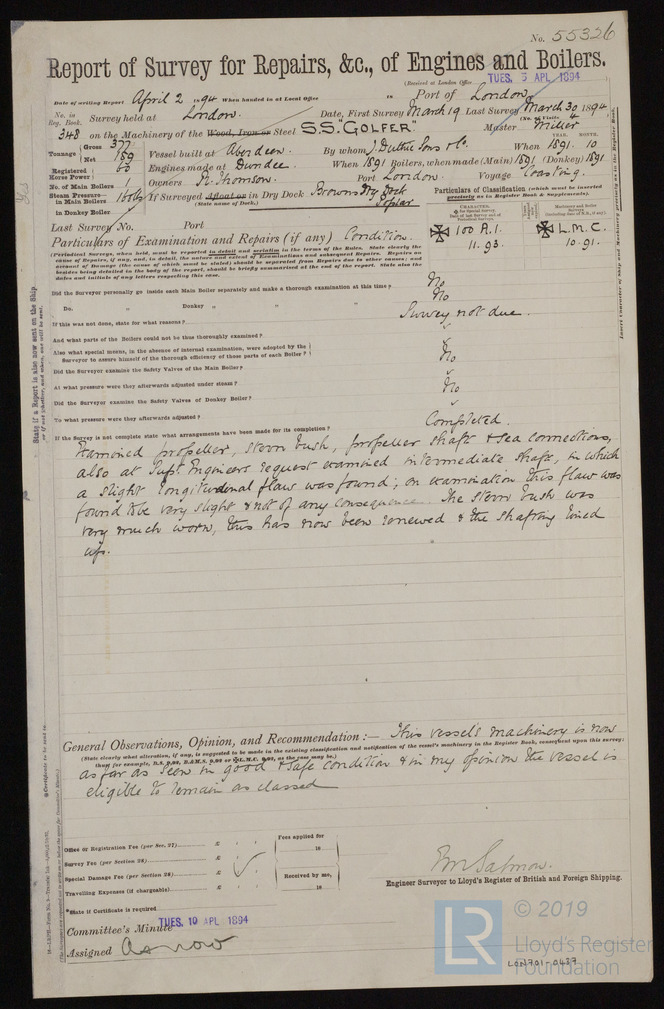 No. 55326
Report of Survey for Repairs, &c., of Engines and Boilers.
(Received at London Office TUES. 3 APL 1894
Date of writing Report April 2 1894 When handed in at Local Office 18 Port of London
No. in Reg. Book. Survey held at London. Date, First Survey March 19 Last Survey March 30 1894
(No. of Visits 4
348 on the Machinery of the Wood, Iron or Steel S.S. "GOLFER" Master Miller
Tonnage Gross 377 Net 159 Vessel built at Aberdeen. By whom J. Duthie Sons & Co. When 1891. YEAR. MONTH. 10
Registered Horse Power 60 Engines made at Dundee. When 1891 Boilers, when made (Main) 1891 (Donkey) 1891
No. of Main Boilers 1 Owners N. Thomson. Port London. Voyage Coasting.
Steam Pressure in Main Boilers 160 lbs If Surveyed Afloat or in Dry Dock Browns Dry Dock Poplar
(State name of Dock.)
in Donkey Boiler
Particulars of Classification (which must be inserted precisely as in Register Book & Supplements).
Last Survey No. Port
100 A.1. 11.93. L.M.C. 10.91.
Particulars of Examination and Repairs (if any) Condition.
(Periodical Surveys, when held, must be reported in detail and seriatim in the terms of the Rules. State clearly the
cause of Repairs, if any, and, in detail, the nature and extent of Examinations and subsequent Repairs. Repairs on
account of Damage (the cause of which must be stated) should be separated from Repairs due to other causes; and
besides being detailed in the body of the report, should be briefly summarised at the end of the report. State also the
dates and initials of any letters respecting this case.
Did the Surveyor personally go inside each Main Boiler separately and make a thorough examination at this time? No
Do. " Donkey " " " No
If this was not done, state for what reasons? Survey not due.
And what parts of the Boilers could not be thoroughly examined?
Also what special means, in the absence of internal examination, were adopted by the
Surveyor to assure himself of the thorough efficiency of those parts of each Boiler?
Did the Surveyor examine the Safety Valves of the Main Boiler? No
At what pressure were they afterwards adjusted under steam?
Did the Surveyor examine the Safety Valves of Donkey Boiler? No
To what pressure were they afterwards adjusted?
If the Survey is not complete state what arrangements have been made for its completion? Completed.
Examined propeller, stern bush, propeller shaft & sea connections,
also at Supt. Engineers request examined intermediate shaft, in which
a slight longitudinal flaw was found; on examination this flaw was
found to be very slight & not of any consequence. The stern bush was
very much worn, this has now been renewed & the shafting lined
up.
General Observations, Opinion, and Recommendation:— This vessel's machinery is now
(State clearly what alteration, if any, is suggested to be made in the existing classification and notification of the vessel's machinery in the Register Book, consequent upon this survey:
as far as seen in good & safe condition & in my opinion the vessel is
eligible to remain as classed
Office or Registration Fee (per Sec. 27) £
Survey Fee (per Section 28) £
Special Damage Fee (per Section 28) £
Travelling Expenses (if chargeable) £
Fees applied for 18
Received by me, 18
Engineer Surveyor to Lloyd's Register of British and Foreign Shipping.
*State if Certificate is required
Committee's Minute TUES. 10 APL 1894
Assigned As now
LR © 2019
Lloyd's Register
Foundation
LON701-0437